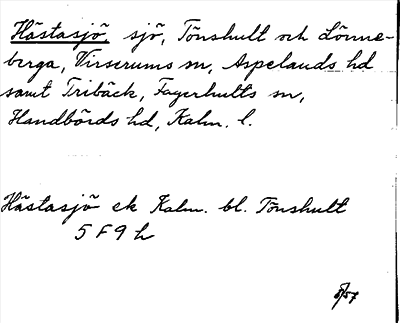 Hästasjö, sjö, Tönshult och Lönne-
berga, Virserums sn, Aspelands hd
samt Tribäck, Fagerhults sn,
Handbörds hd, Kalm. l.
Hästasjö ek Kalm. bl. Tönshult
5 F 9 h
8/57